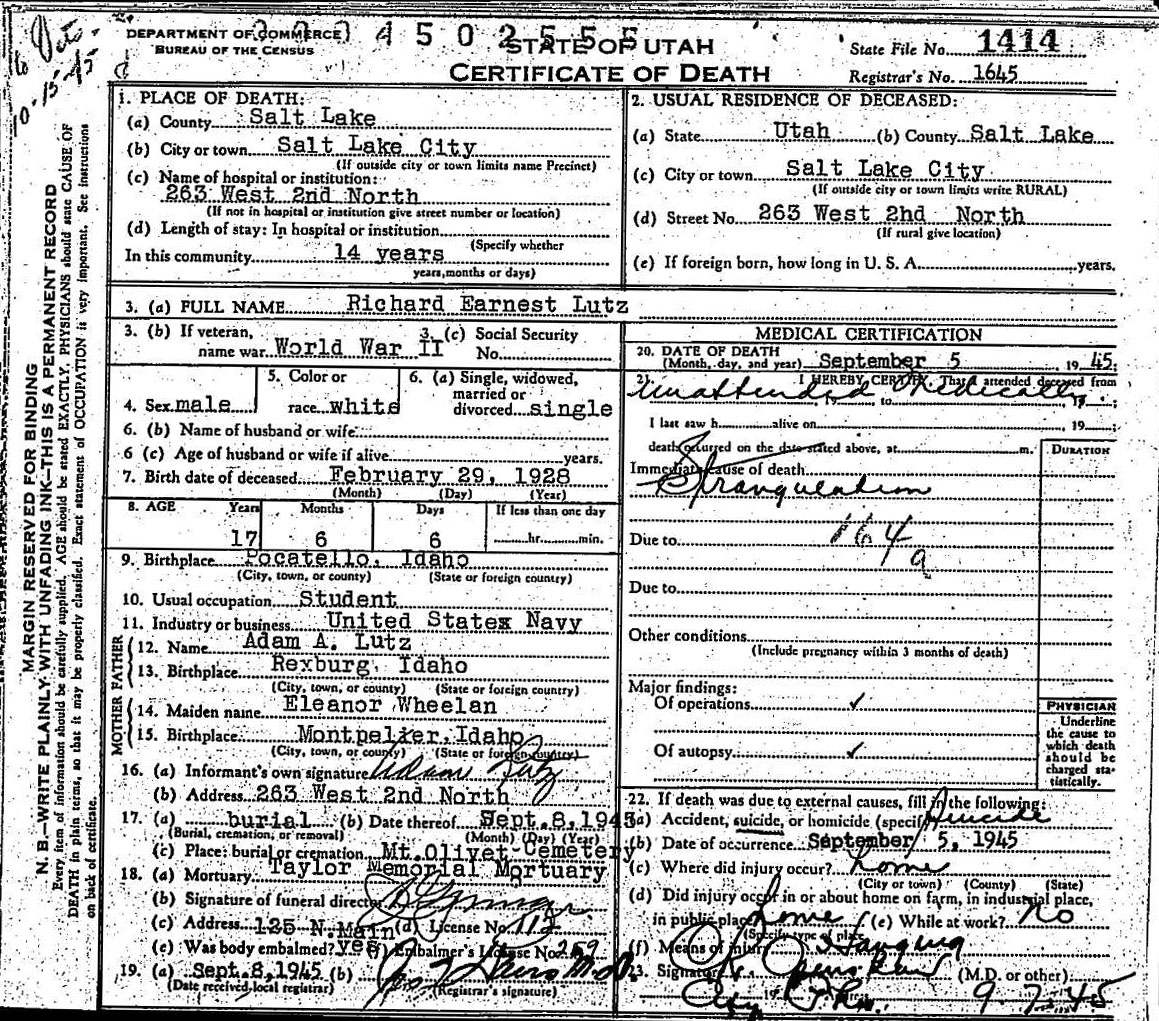 DEPARTMENT OF COMMERCE
BUREAU OF THE CENSUS
STATE OF UTAH
CERTIFICATE OF DEATH
State File No. 1414
Registrar's No. 1645
10-15-45
MARGIN RESERVED FOR BINDING
N. B.—WRITE PLAINLY WITH UNFADING INK—THIS IS A PERMANENT RECORD
Every item of information should be carefully supplied. AGE should be stated EXACTLY. PHYSICIANS should state CAUSE OF
DEATH in plain terms, so that it may be properly classified. Exact statement of OCCUPATION is very important. See instructions
on back of certificate.
1. PLACE OF DEATH:
(a) County Salt Lake
(b) City or town Salt Lake City
(If outside city or town limits name Precinct)
(c) Name of hospital or institution:
263 West 2nd North
(If not in hospital or institution give street number or location)
(d) Length of stay: In hospital or institution
(Specify whether
In this community 14 years
years, months or days)
2. USUAL RESIDENCE OF DECEASED:
(a) State Utah (b) County Salt Lake
(c) City or town Salt Lake City
(If outside city or town limits write RURAL)
(d) Street No. 263 West 2hd North
(If rural give location)
(e) If foreign born, how long in U. S. A. years.
3. (a) FULL NAME Richard Earnest Lutz
3. (b) If veteran,
name war World War II
3. (c) Social Security
No.
4. Sex male
5. Color or
race white
6. (a) Single, widowed,
married or
divorced single
6. (b) Name of husband or wife
6 (c) Age of husband or wife if alive years.
7. Birth date of deceased February 29, 1928
(Month) (Day) (Year)
8. AGE Years Months Days If less than one day
17 6 6 hr. min.
9. Birthplace Pocatello, Idaho
(City, town, or county) (State or foreign country)
10. Usual occupation Student
11. Industry or business United Statex Navy
FATHER
12. Name Adam A. Lutz
13. Birthplace Rexburg, Idaho
(City, town, or county) (State or foreign country)
MOTHER
14. Maiden name Eleanor Wheelan
15. Birthplace Montpelier, Idaho
(City, town, or county) (State or foreign country)
16. (a) Informant's own signature Adam Lutz
(b) Address 263 West 2nd North
17. (a) burial (b) Date thereof Sept. 8, 1945
(Burial, cremation, or removal) (Month) (Day) (Year)
(c) Place: burial or cremation Mt. Olivet Cemetery
18. (a) Mortuary Taylor Memorial Mortuary
(b) Signature of funeral director
(c) Address 125 N. Main (d) License No. 112
(e) Was body embalmed? yes (f) Embalmer's License No. 259
19. (a) Sept. 8, 1945 (b)
(Date received local registrar) (Registrar's signature)
MEDICAL CERTIFICATION
20. DATE OF DEATH
(Month, day, and year) September 5 , 19 45
21. I HEREBY CERTIFY, That I attended deceased from
Unattended Medically , 19 to , 19
I last saw h alive on 19
death occurred on the date stated above, at m.
DURATION
Immediate cause of death
Strangulation
Due to 164
a
Due to
Other conditions
(Include pregnancy within 3 months of death)
Major findings:
Of operations ✓
Of autopsy ✓
PHYSICIAN
Underline
the cause to
which death
should be
charged sta-
tistically.
22. If death was due to external causes, fill in the following:
(a) Accident, suicide, or homicide (specify) Suicide
(b) Date of occurrence September 5, 1945
(c) Where did injury occur? home
(City or town) (County) (State)
(d) Did injury occur in or about home on farm, in industrial place,
in public place home (e) While at work? No
(Specify type of place)
(f) Means of injury Hanging
23. Signature (M.D. or other)
City Phy. 9-7-45